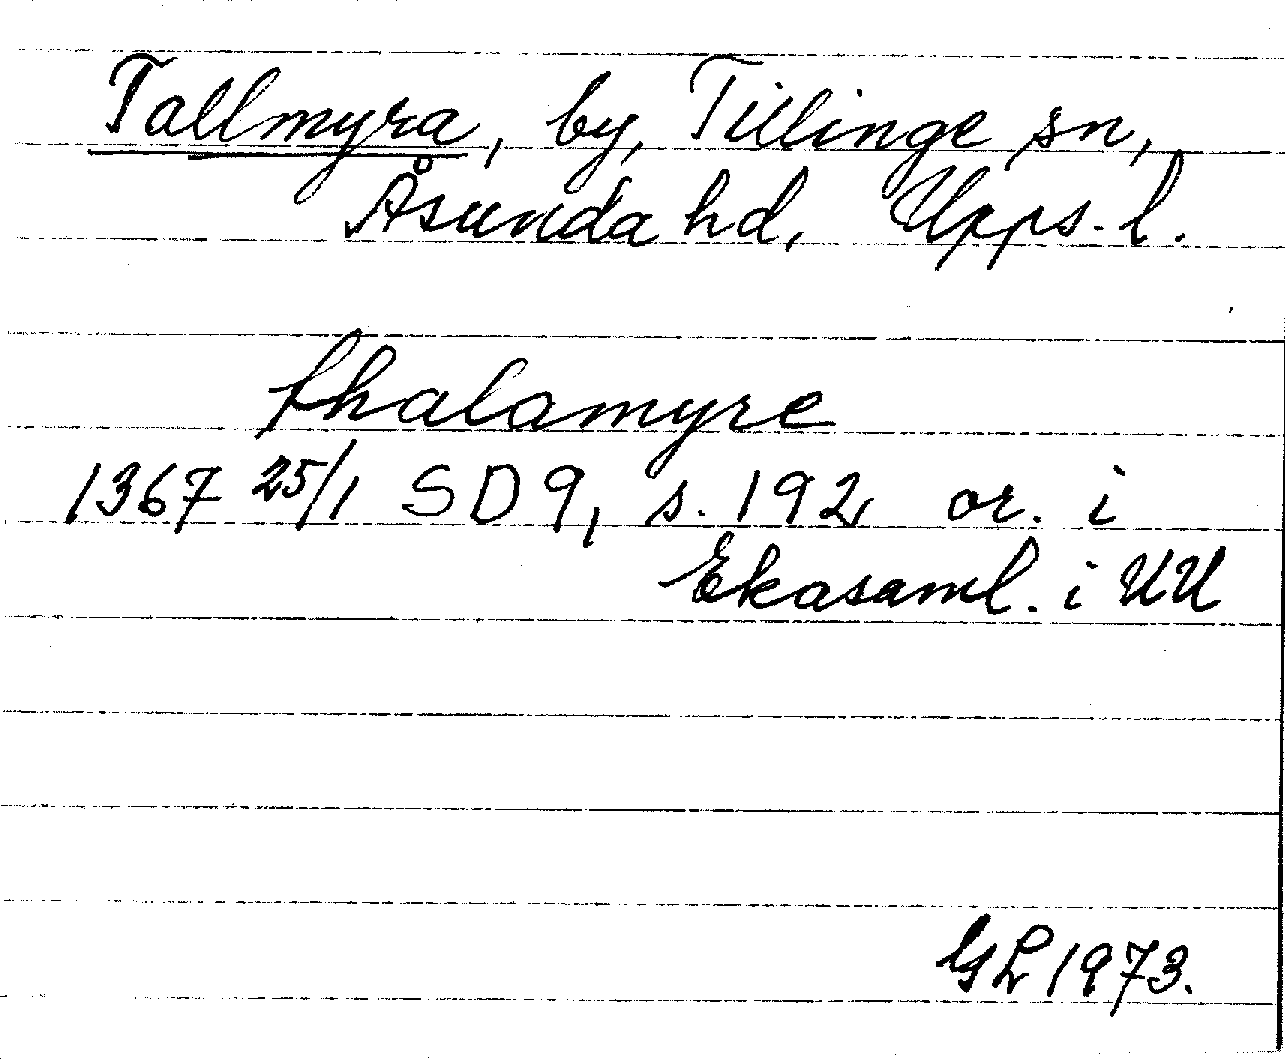 Tallmyra, by, Tillinge sn,
Åsunda hd, Upps. l.
thalamyre
1367 25/1 SD 9, s. 192 or. i
Ekasaml. i UU
GL 1973.